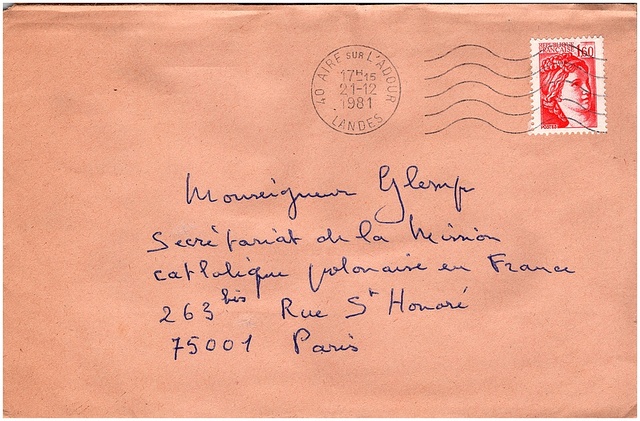 40 AIRE SUR L'ADOUR
17H15
21-12
1981
LANDES
REPUBLIQUE
FRANCAISE 1,60
POSTES
Monseigneur Glemp
Secrétariat de la Mission
catholique polonaise en France
263 bis Rue St Honoré
75001 Paris